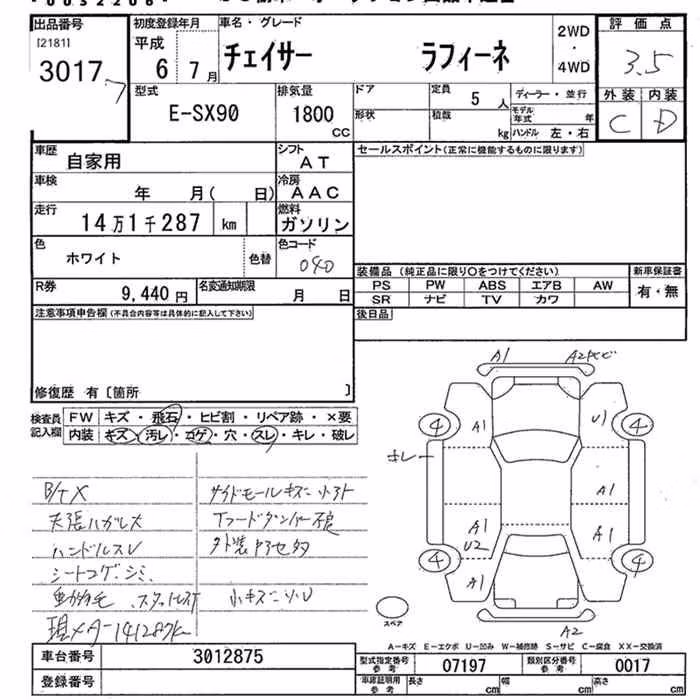 出品番号 初度登録年月 車名・グレード 評価点
[2181] 3017 平成 6 7月 チェイサー ラフィーネ 2WD・4WD 3.5
型式 排気量 ドア 定員 ディーラー・並行 外装 内装
E-SX90 1800 CC 形状 積載 kg 5人 モデル年式 年 ハンドル 左・右 C D
車歴 自家用 シフト AT セールスポイント(正常に機能するものに限ります)
車検 年 月( 日) 冷房 AAC
走行 14万1千287 km 燃料 ガソリン
色 ホワイト 色替 色コード 040
装備品 (純正品に限り○をつけてください) 新車保証書
R券 9,440円 名変通知期限 月 日 PS PW ABS エアB AW 有・無
SR ナビ TV カワ
注意事項申告欄(不具合内容等は具体的に記入して下さい) 後日品
修復歴 有〔箇所 〕
検査員記入欄 FW キズ・飛石・ヒビ割・リペア跡・×要
内装 キズ・汚レ・コゲ・穴・スレ・キレ・破レ
A1 A2
A1 U1
4 4
キレ
A1
A1 U2 A1
4 4
A1
A2
スペア
B/T X サイドモールキズ
天張ハガレ大
ハンドルスレ
シートコゲ、シミ
小キズ
現メーター141287k
A－キズ E－エクボ U－凹み W－補修跡 S－サビ C－腐食 XX－交換済
車台番号 3012875 型式指定番号 参考 07197 類別区分番号 参考 0017
登録番号 車庫証明用 参考 長さ cm 幅 cm 高さ cm